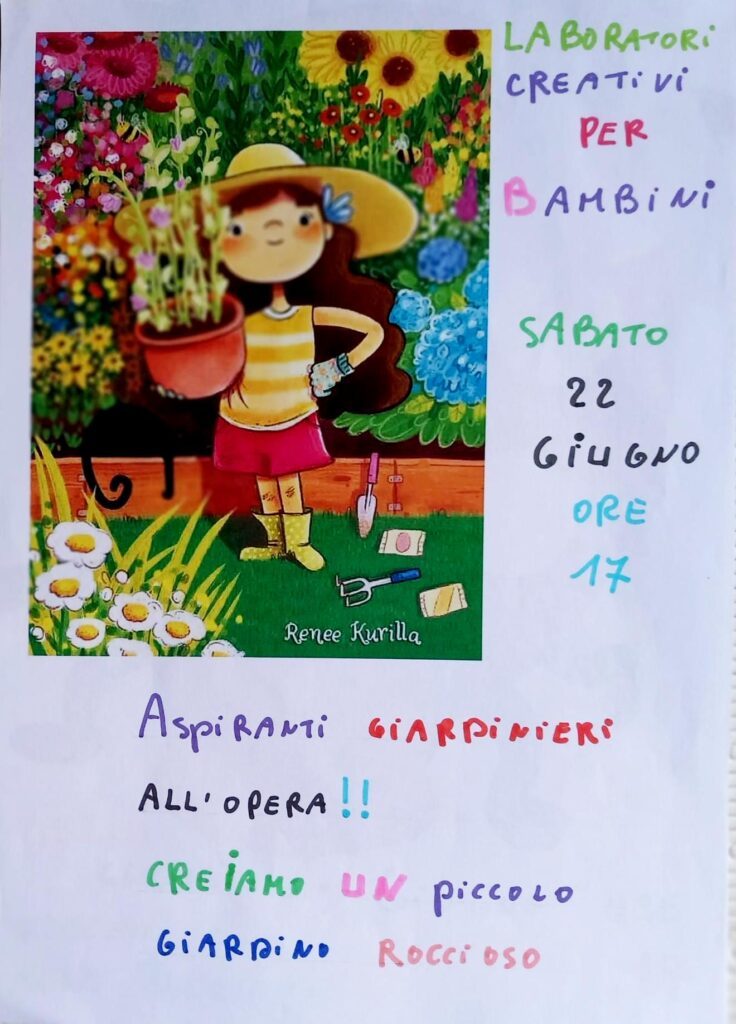 LABORATORI
CREATIVI
PER
BAMBINI
SABATO
22
GIUGNO
ORE
17
Renee Kurilla
ASPIRANTI GIARDINIERI
ALL'OPERA!!
CREIAMO UN PICCOLO
GIARDINO ROCCIOSO